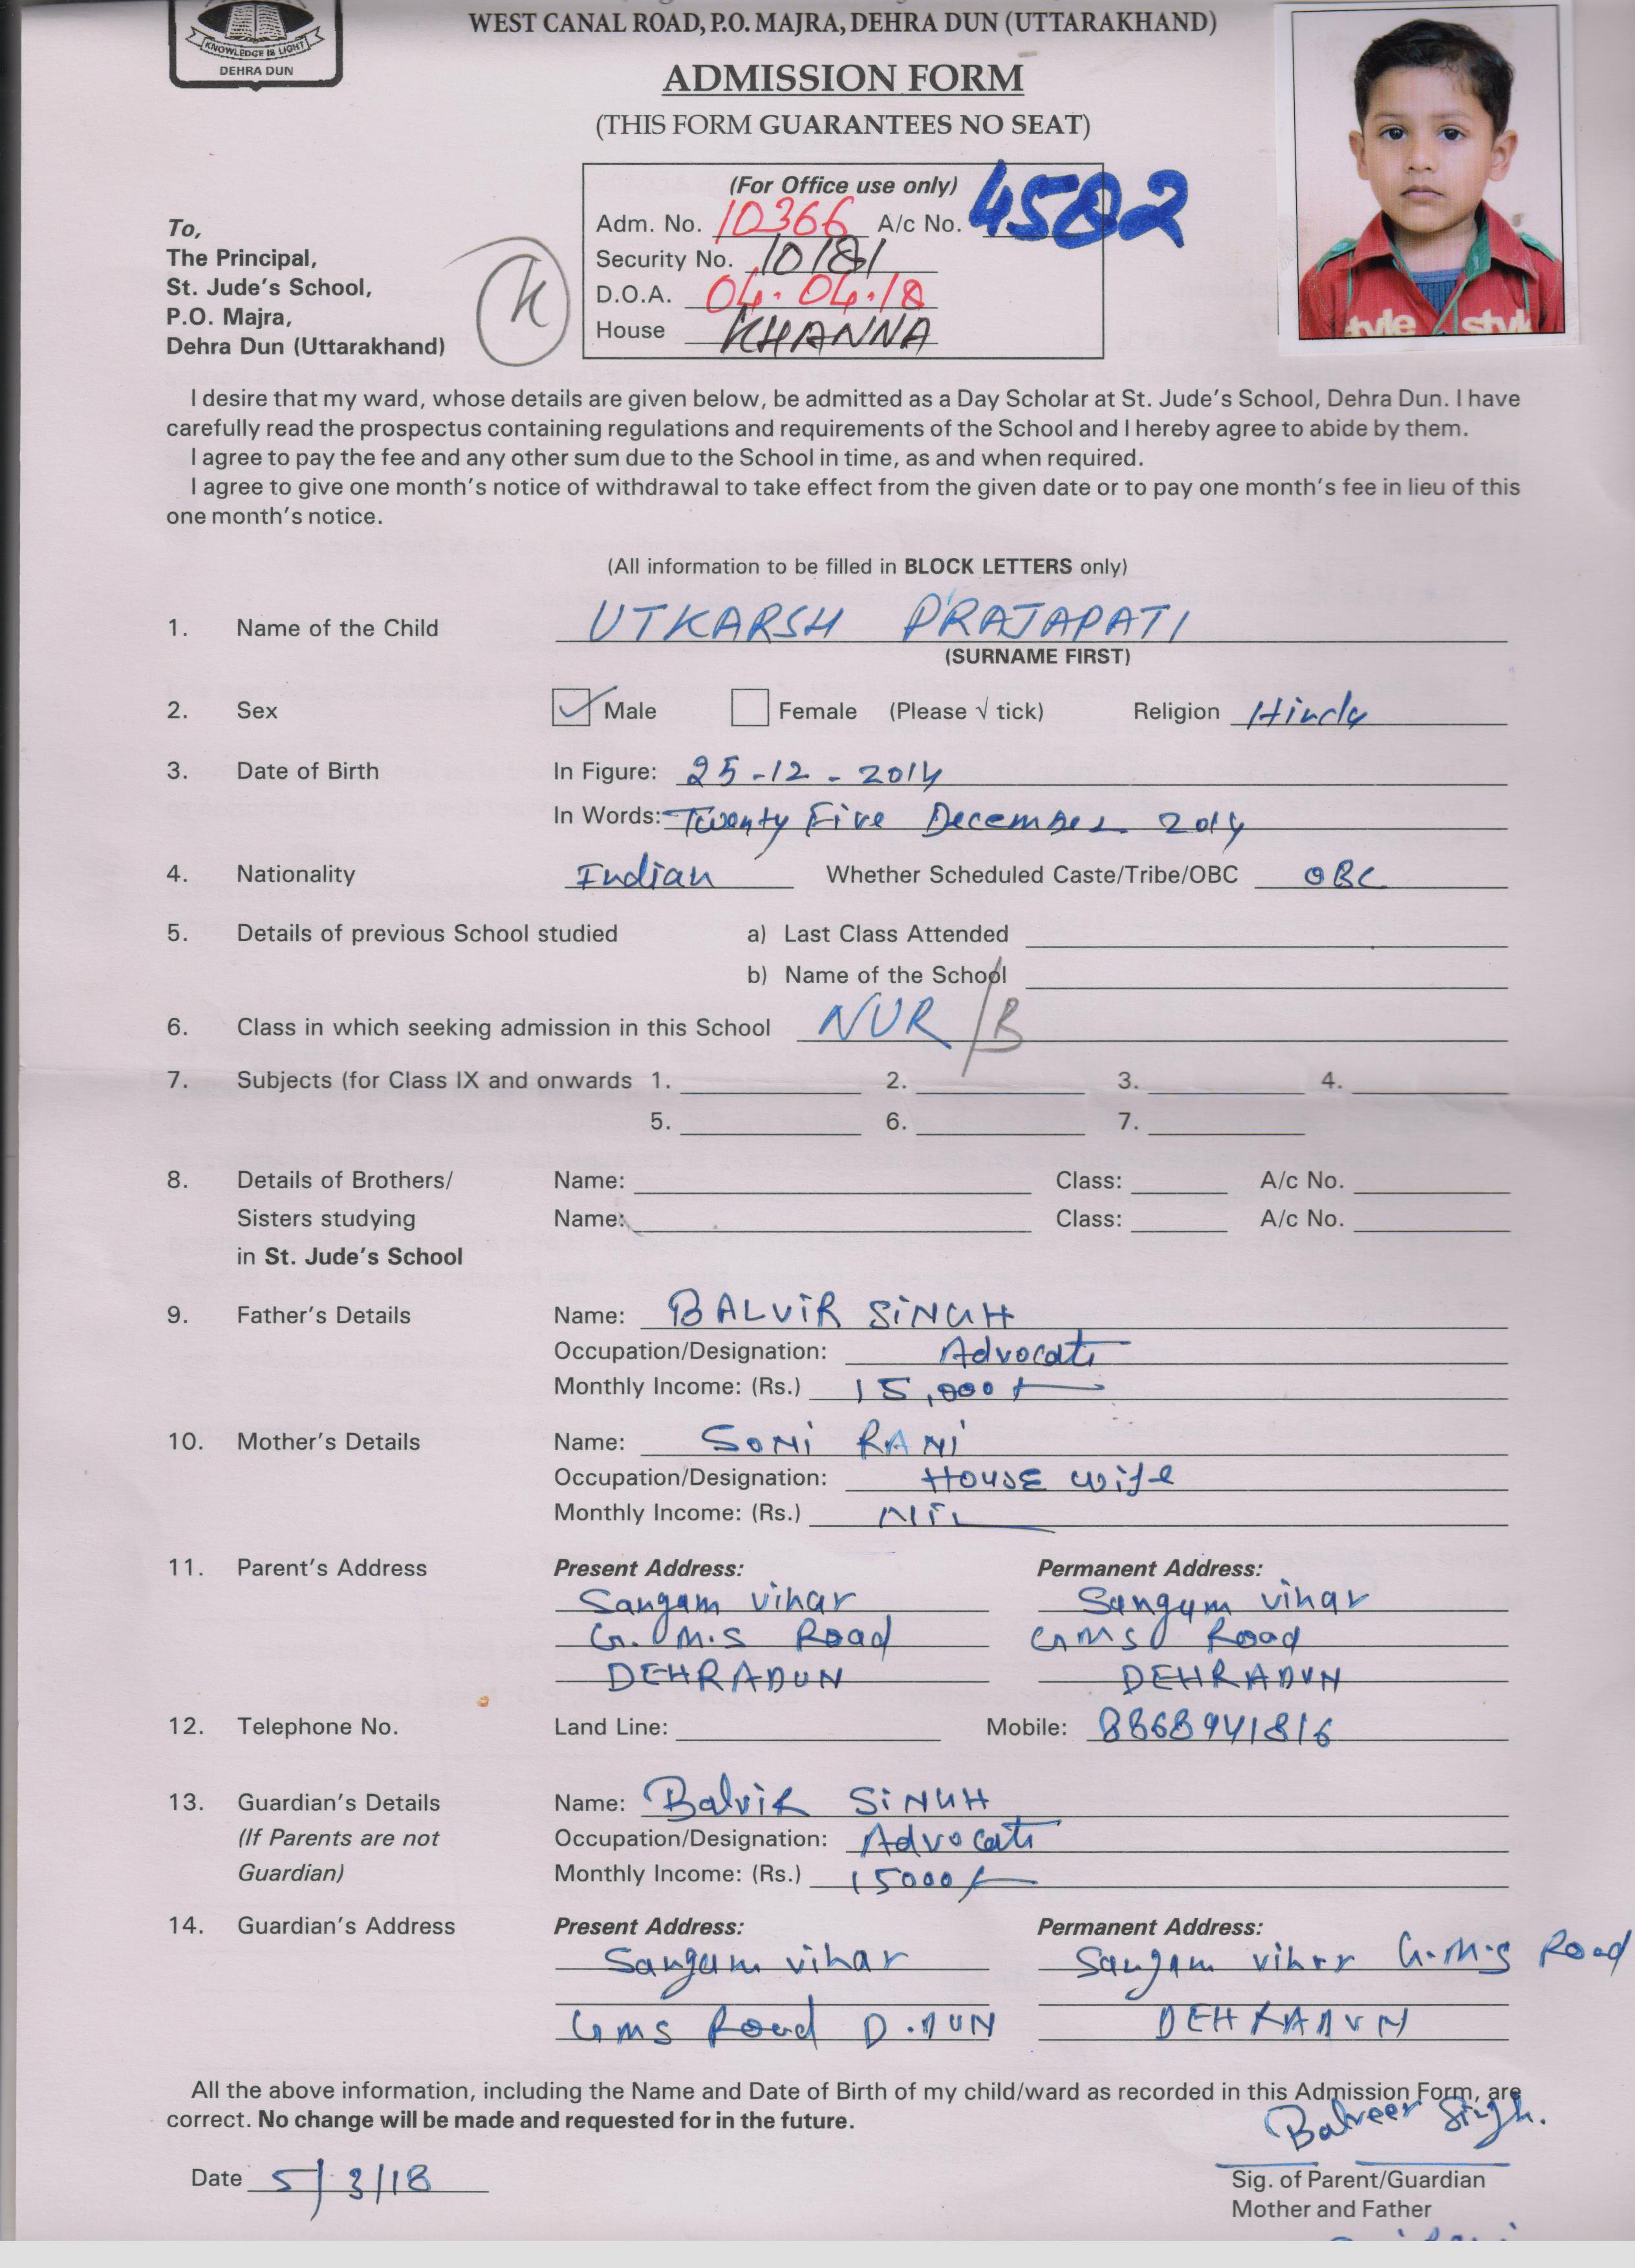 KNOWLEDGE IS LIGHT
DEHRA DUN
WEST CANAL ROAD, P.O. MAJRA, DEHRA DUN (UTTARAKHAND)
ADMISSION FORM
(THIS FORM GUARANTEES NO SEAT)
(For Office use only)
Adm. No. 10366 A/c No. 4582
Security No. 10181
D.O.A. 04.04.18
House KHANNA
To,
The Principal,
St. Jude's School,
P.O. Majra,
Dehra Dun (Uttarakhand)
K
style style
I desire that my ward, whose details are given below, be admitted as a Day Scholar at St. Jude's School, Dehra Dun. I have
carefully read the prospectus containing regulations and requirements of the School and I hereby agree to abide by them.
I agree to pay the fee and any other sum due to the School in time, as and when required.
I agree to give one month's notice of withdrawal to take effect from the given date or to pay one month's fee in lieu of this
one month's notice.
(All information to be filled in BLOCK LETTERS only)
1. Name of the Child UTKARSH PRAJAPATI
(SURNAME FIRST)
2. Sex Male Female (Please √ tick) Religion Hindu
3. Date of Birth In Figure: 25-12-2014
In Words: Twenty Five December 2014
4. Nationality Indian Whether Scheduled Caste/Tribe/OBC OBC
5. Details of previous School studied a) Last Class Attended
b) Name of the School
6. Class in which seeking admission in this School NUR/B
7. Subjects (for Class IX and onwards 1. 2. 3. 4.
5. 6. 7.
8. Details of Brothers/ Name: Class: A/c No.
Sisters studying Name: Class: A/c No.
in St. Jude's School
9. Father's Details Name: BALVIR SINGH
Occupation/Designation: Advocate
Monthly Income: (Rs.) 15,000/-
10. Mother's Details Name: SONI RANI
Occupation/Designation: HOUSE wife
Monthly Income: (Rs.) NIL
11. Parent's Address Present Address: Permanent Address:
Sangam vihar Sangam vihar
G.M.S Road GMS Road
DEHRADUN DEHRADUN
12. Telephone No. Land Line: Mobile: 8868941816
13. Guardian's Details Name: Balvir SINGH
(If Parents are not Occupation/Designation: Advocate
Guardian) Monthly Income: (Rs.) 15000/-
14. Guardian's Address Present Address: Permanent Address:
Sangam vihar Sangam vihar G.M.S Road
GMS Road D.DUN DEHRADUN
All the above information, including the Name and Date of Birth of my child/ward as recorded in this Admission Form, are
correct. No change will be made and requested for in the future.
Balveer Singh.
Date 5/3/18 Sig. of Parent/Guardian
Mother and Father